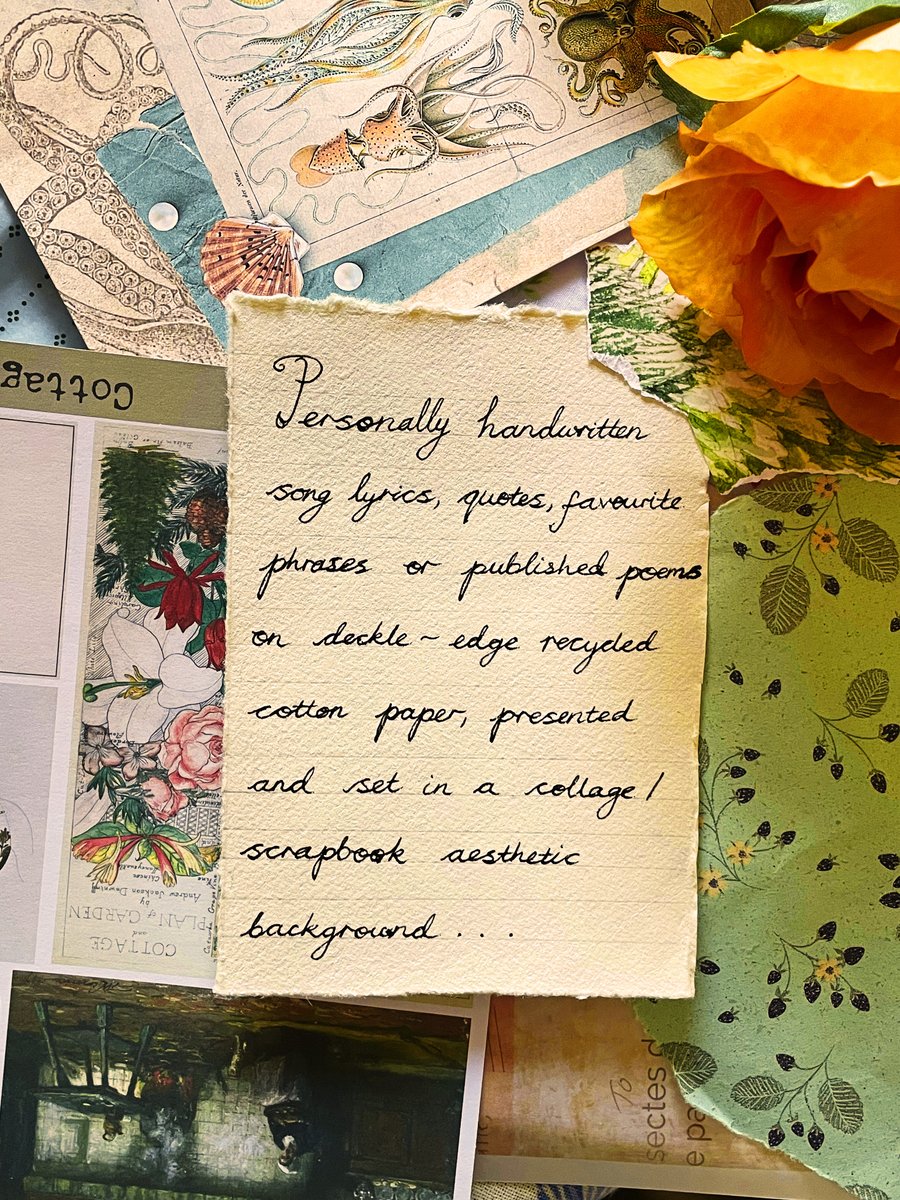 Cottag
Personally handwritten
song lyrics, quotes, favourite
phrases or published poems
on deckle ~ edge recycled
cotton paper, presented
and set in a collage /
scrapbook aesthetic
background . . .
COTTAGE
and
PLAN of GARDEN
by
Andrew Jackson Downing
To
sectes d
e pa